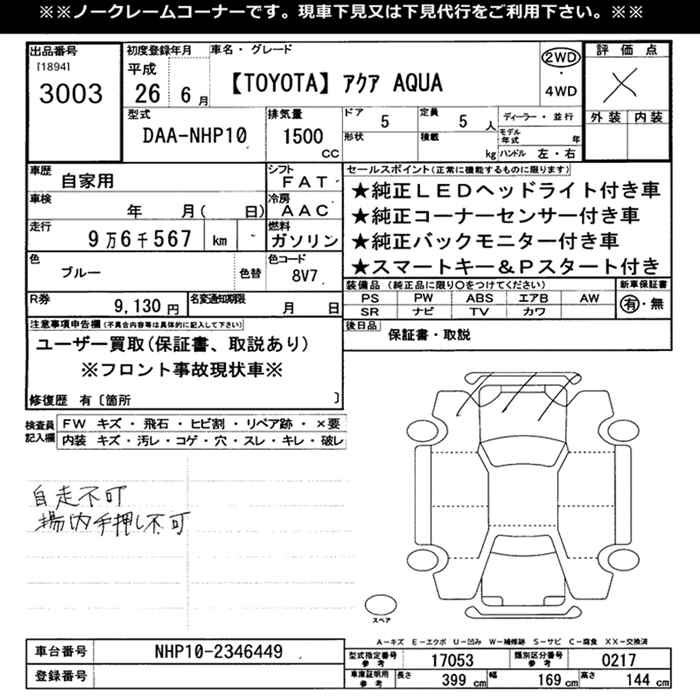 ※※ノークレームコーナーです。現車下見又は下見代行をご利用下さい。※※
出品番号
[1894]
3003
初度登録年月
平成
26 6月
車名・グレード
【TOYOTA】アクア AQUA
2WD
・
4WD
評価点
×
外装 内装
型式
DAA-NHP10
排気量
1500
CC
ドア 5
定員 5 人
形状
積載 kg
ディーラー・並行
モデル年式 年
ハンドル 左・右
車歴
自家用
シフト
FAT
車検
年 月( 日)
冷房
AAC
走行
9万6千567 km
燃料
ガソリン
色
ブルー
色替
色コード
8V7
R券
9,130 円
名変通知期限
月 日
セールスポイント(正常に機能するものに限ります)
★純正LEDヘッドライト付き車
★純正コーナーセンサー付き車
★純正バックモニター付き車
★スマートキー&Pスタート付き
装備品(純正品に限り○をつけてください)
PS PW ABS エアB AW
SR ナビ TV カワ
新車保証書
有・無
後日品
保証書・取説
注意事項申告欄(不具合内容等は具体的に記入して下さい)
ユーザー買取(保証書、取説あり)
※フロント事故現状車※
修復歴 有〔箇所 〕
検査員
記入欄
FW キズ・飛石・ヒビ割・リペア跡・×要
内装 キズ・汚レ・コゲ・穴・スレ・キレ・破レ
自走不可
場内手押し不可
スペア
A-キズ E-エクボ U-凹み W-補修跡 S-サビ C-腐食 XX-交換済
車台番号
NHP10-2346449
登録番号
型式指定番号
参考
17053
類別区分番号
参考
0217
車庫証明用
参考
長さ 399 cm 幅 169 cm 高さ 144 cm